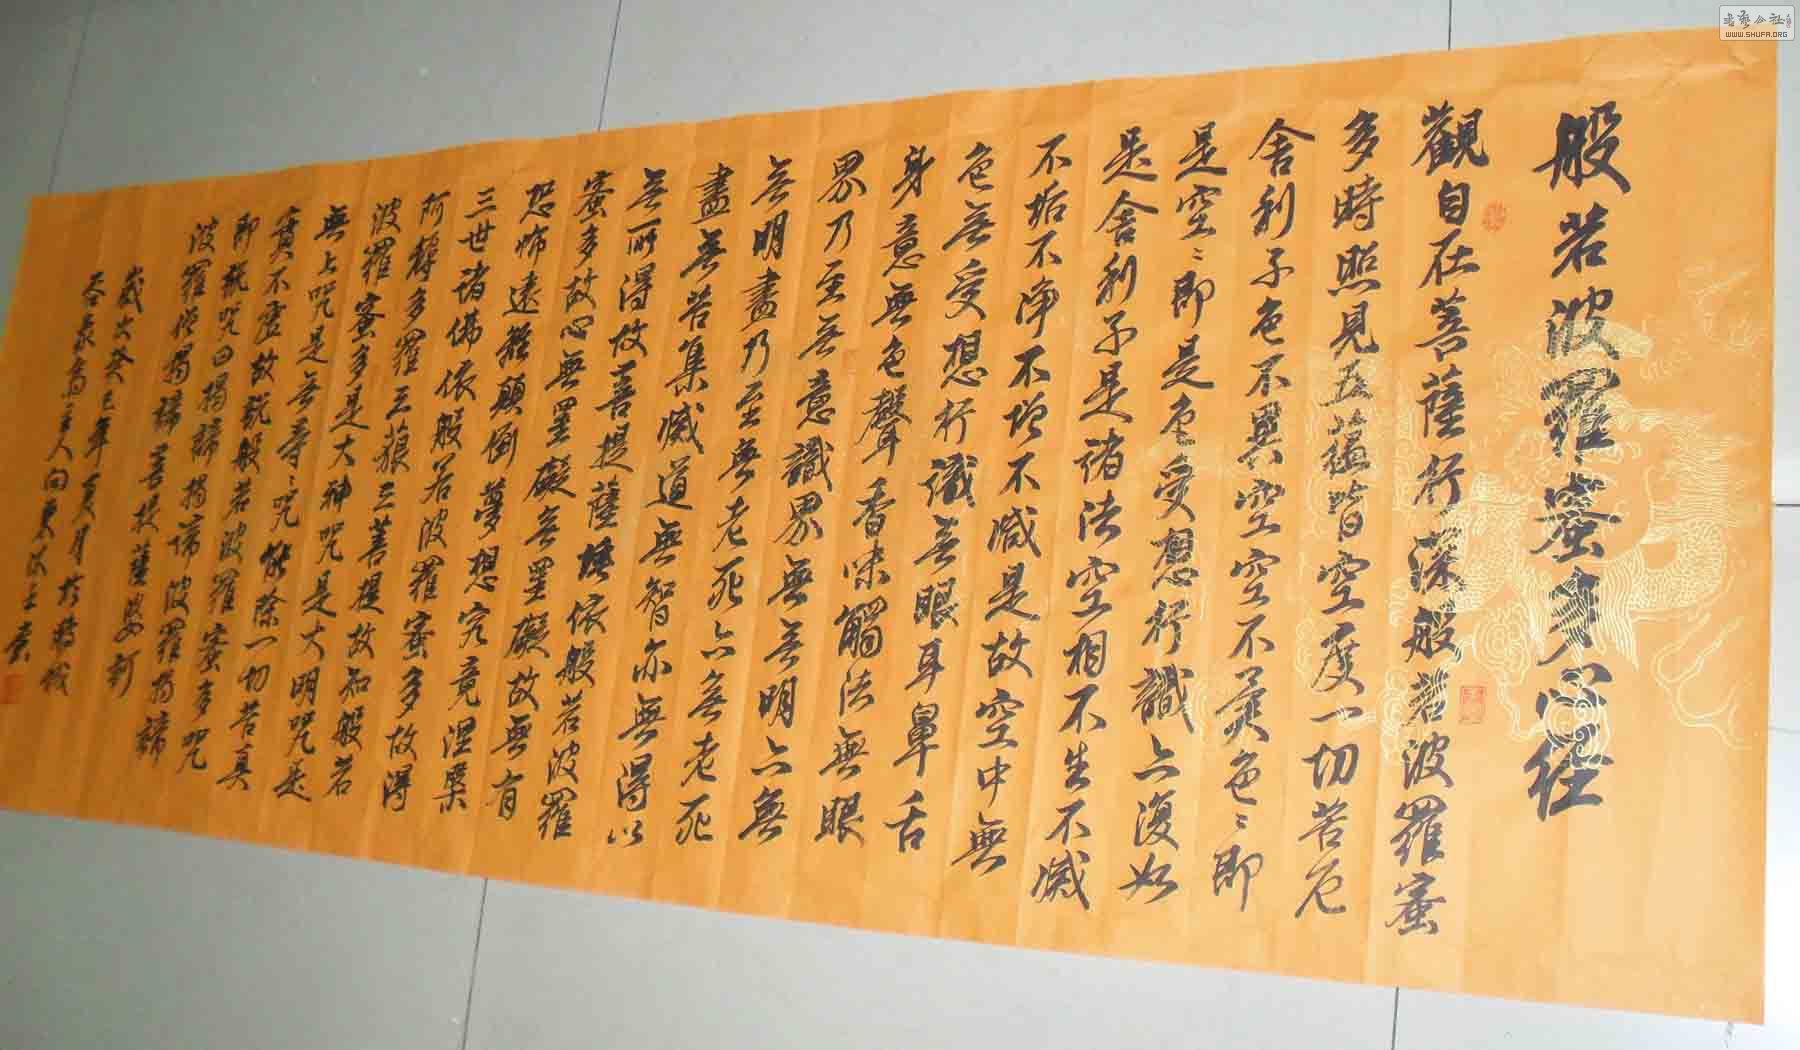 般若波羅蜜多心经
觀自在菩薩行深般若波羅蜜
多時照見五蘊皆空度一切苦厄
舍利子色不異空空不異色〻即
是空〻即是色受想行識亦復如
是舍利子是诸法空相不生不滅
不垢不净不增不减是故空中無
色無受想行識無眼耳鼻舌
身意無色聲香味觸法無眼
界乃至無意識界無無明亦無
無明盡乃至無老死亦無老死
盡無苦集滅道無智亦無得以
無所得故菩提薩埵依般若波羅
蜜多故心無罣礙無罣礙故無有
恐怖遠離顛倒夢想究竟涅槃
三世诸佛依般若波羅蜜多故得
阿耨多羅三藐三菩提故知般若
波羅蜜多是大神咒是大明咒是
無上咒是無等〻咒能除一切苦真
實不虛故說般若波羅蜜多咒
即說咒曰揭諦揭諦波羅揭諦
波羅僧揭諦菩提薩婆訶
歲次癸巳年夏月於
主人
WWW.SHUFA.ORG